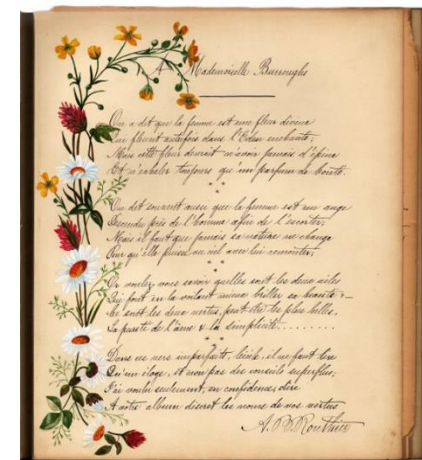 A Mademoiselle Burroughs
On a dit que la femme est une fleur divine
qui fleurit autrefois dans l'Eden enchanté;
Mais cette fleur devrait n'avoir jamais d'épine
Et n'exhaler toujours qu'un parfum de bonté.
On dit souvent aussi que la femme est un ange
Descendu près de l'homme afin de l'escorter;
Mais il faut que jamais sa nature ne change
Pour qu'elle puisse au ciel avec lui remonter;
Or voulez-vous savoir quelles sont les deux ailes
Qui font en la voilant mieux briller sa beauté?—
Ce sont les deux vertus, peut-être les plus belles,
La pureté de l'âme & la simplicité.........
Dans ces vers imparfaits, Lécile, il ne faut lire
Qu'un éloge, et non pas des conseils superflus;
J'ai voulu seulement, en confidence, dire
A votre album discret les noms de vos vertus
A. B. Routhier